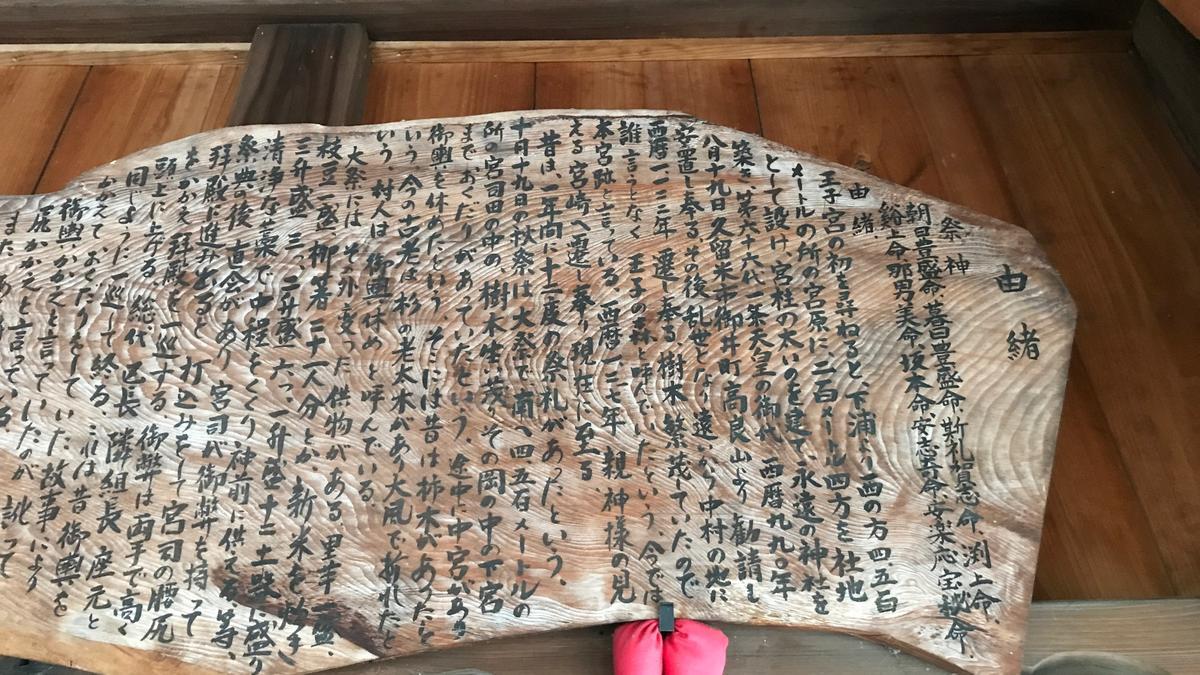 由緒
祭神
朝日豊盛命、暮日豊盛命、斯礼賀志命、渕上命、
那男美命、坂本命、安志奇命、安楽応宝秘命、
由緒
王子宮の初を尋ねると、下浦より西の方四、五百
メートルの所の宮原に、二百メートル四方を社地
として設け、宮柱の太いのを建て、永遠の神社を
築き、第六十六代一条天皇の御代、西暦九九〇年
八月十九日久留米市御井町高良山より勧請し
安置し奉る。その後乱世となり遠いから中村の地に
西暦一一二三年 遷し奉る、樹木繁茂していたので
誰言うとなく 王子の森と呼んでいたという、今では
本宮跡と言っている。西暦一二七年 親神様の見
える宮崎へ遷し奉り現在に至る。
昔は一年間に十二度の祭礼があったという、
十月十九日の秋祭は大祭で、南へ四五百メートルの
所の宮司田の中の、樹木生茂りその岡の中の下宮
まで、おくだりがあっていたという、途中に中宮があり
御輿を休めたという、そこには昔は柿木があったと
いう、今の古老は杉の老大木があり大風で折れたと
いう、村人は御輿はめと呼んでいる。
大祭には その外変った供物がある。里芋一盛、
枝豆一盛 柳箸三十一人分とか、新米を炊き、
三升盛三つ、二升盛六つ、一升盛十二 土器に盛り
清浄な藁で中程をくくり、神前に供える等、
祭典の後 直会があり 宮司が御弊を持って
拝殿に進み出ると 打込みをして 宮司の腰尻
をかかえ 拝殿を一巡する 御弊は両手で高く
頭上に上げる 総代 区長 隣組長 座元と
同じように一巡して終る、これは昔 御輿を
かかえて おくだりをしていた故事により
御輿かかくと言っていたのが 訛って
尻かかえと言っている
また